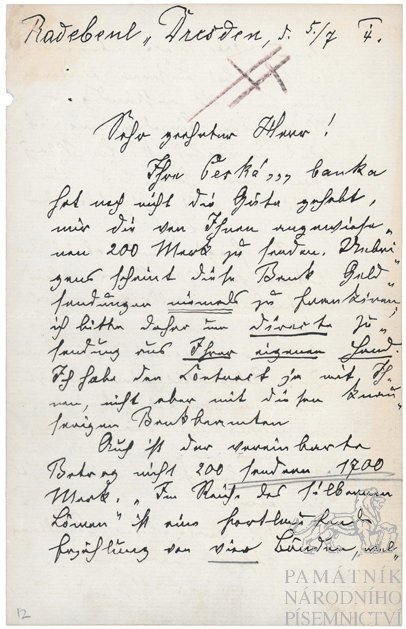 Radebeul-Dresden, d. 5./7
Sehr geehrter Herr!
Ihre Česká,,, banka
hat noch nicht die Güte gehabt,
mir die von Ihnen angewiese-
nen 200 Mark zu senden. Uebri-
gens scheint diese Bank Geld-
sendungen niemals zu frankiren;
ich bitte daher um directe Zu-
sendung aus Ihrer eigenen Hand.
Ich habe den Contract ja mit Ih-
nen, nicht aber mit diesen knau-
serigen Bankbeamten
Auch ist der vereinbarte
Betrag nicht 200 sondern 1900
Mark. "Im Reiche des silbernen
Löwen" ist eine fortlaufende
Erzählung von vier Bänden, wel-
12
PAMÁTNÍK
NÁRODNÍHO
PÍSEMNICTVÍ